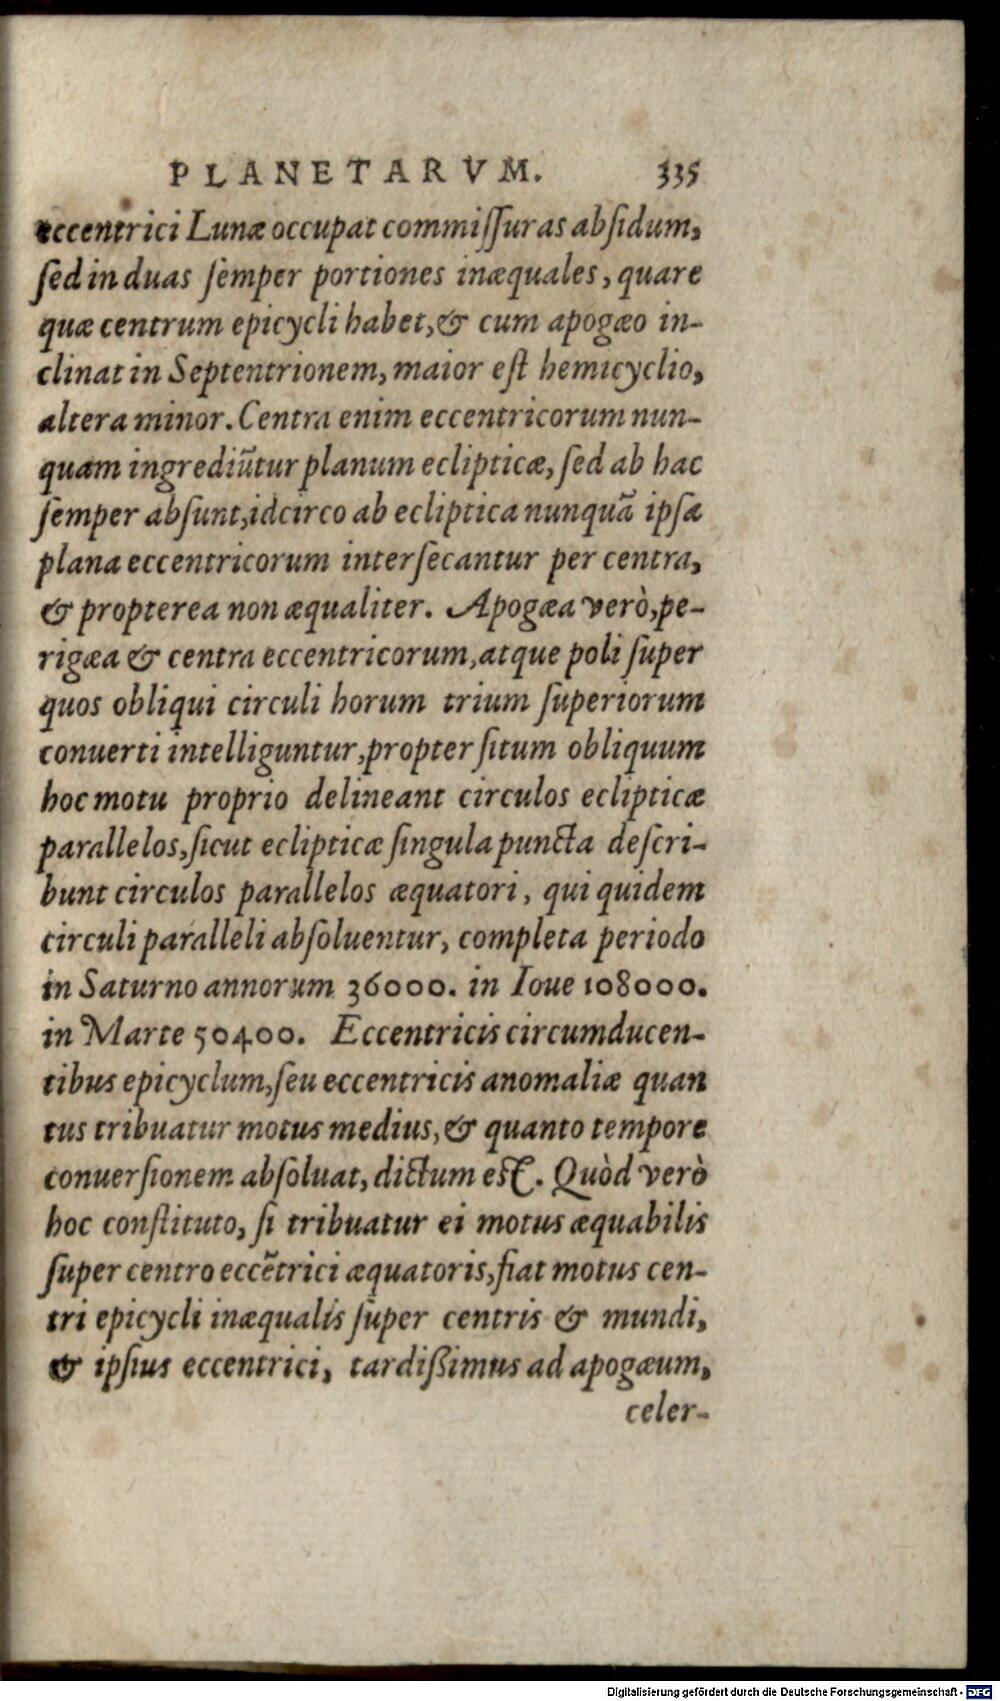 PLANETARVM. 335
eccentrici Lunæ occupat commiſſuras abſidum,
ſed in duas ſemper portiones inæquales, quare
quæ centrum epicycli habet, & cum apogæo in-
clinat in Septentrionem, maior eſt hemicyclio,
altera minor. Centra enim eccentricorum nun-
quam ingrediũtur planum eclipticæ, ſed ab hac
ſemper abſunt, idcirco ab ecliptica nunquã ipſa
plana eccentricorum interſecantur per centra,
& propterea non æqualiter. Apogæa verò, pe-
rigæa & centra eccentricorum, atque poli ſuper
quos obliqui circuli horum trium ſuperiorum
conuerti intelliguntur, propter ſitum obliquum
hoc motu proprio delineant circulos eclipticæ
parallelos, ſicut eclipticæ ſingula puncta deſcri-
bunt circulos parallelos æquatori, qui quidem
circuli paralleli abſoluentur, completa periodo
in Saturno annorum 36000. in Ioue 108000.
in Marte 50400. Eccentricis circumducen-
tibus epicyclum, ſeu eccentricis anomaliæ quan
tus tribuatur motus medius, & quanto tempore
conuerſionem abſoluat, dictum est. Quòd verò
hoc conſtituto, ſi tribuatur ei motus æquabilis
ſuper centro eccẽtrici æquatoris, fiat motus cen-
tri epicycli inæqualis ſuper centris & mundi,
& ipſius eccentrici, tardißimus ad apogæum,
celer-
Digitalisierung gefördert durch die Deutsche Forschungsgemeinschaft - DFG